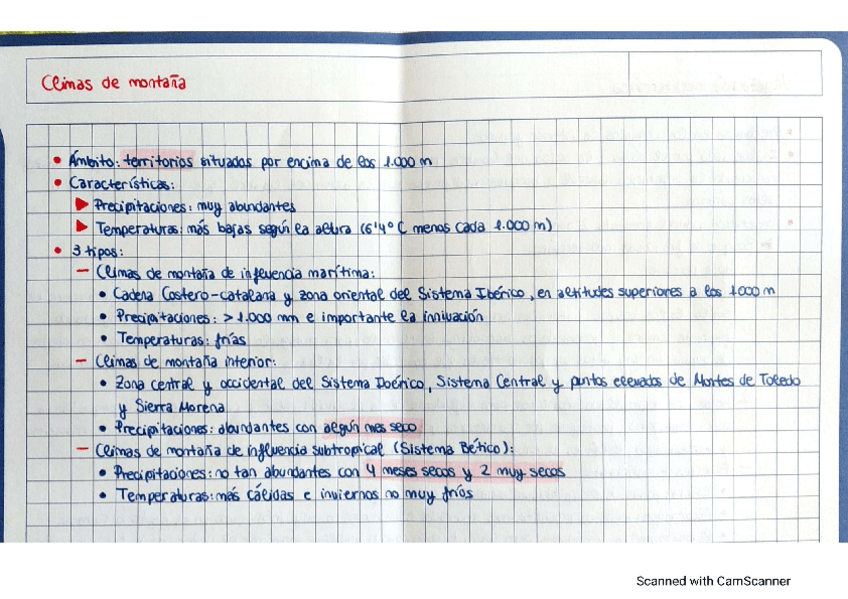 Climas de montaña
• Ámbito: territorios situados por encima de los 1.000 m
• Características:
▶ Precipitaciones: muy abundantes
▶ Temperaturas: más bajas según la altura (6'4°C menos cada 1.000 m)
• 3 tipos:
– Climas de montaña de influencia marítima:
• Cadena Costero-catalana y zona oriental del Sistema Ibérico, en altitudes superiores a los 1000 m
• Precipitaciones: > 1.000 mm e importante la innivación
• Temperaturas: frías
– Climas de montaña interior:
• Zona central y occidental del Sistema Ibérico, Sistema Central y puntos elevados de Montes de Toledo
y Sierra Morena
• Precipitaciones: abundantes con algún mes seco
– Climas de montaña de influencia subtropical (Sistema Bético):
• Precipitaciones: no tan abundantes con 4 meses secos y 2 muy secos
• Temperaturas: más cálidas e inviernos no muy fríos
Scanned with CamScanner